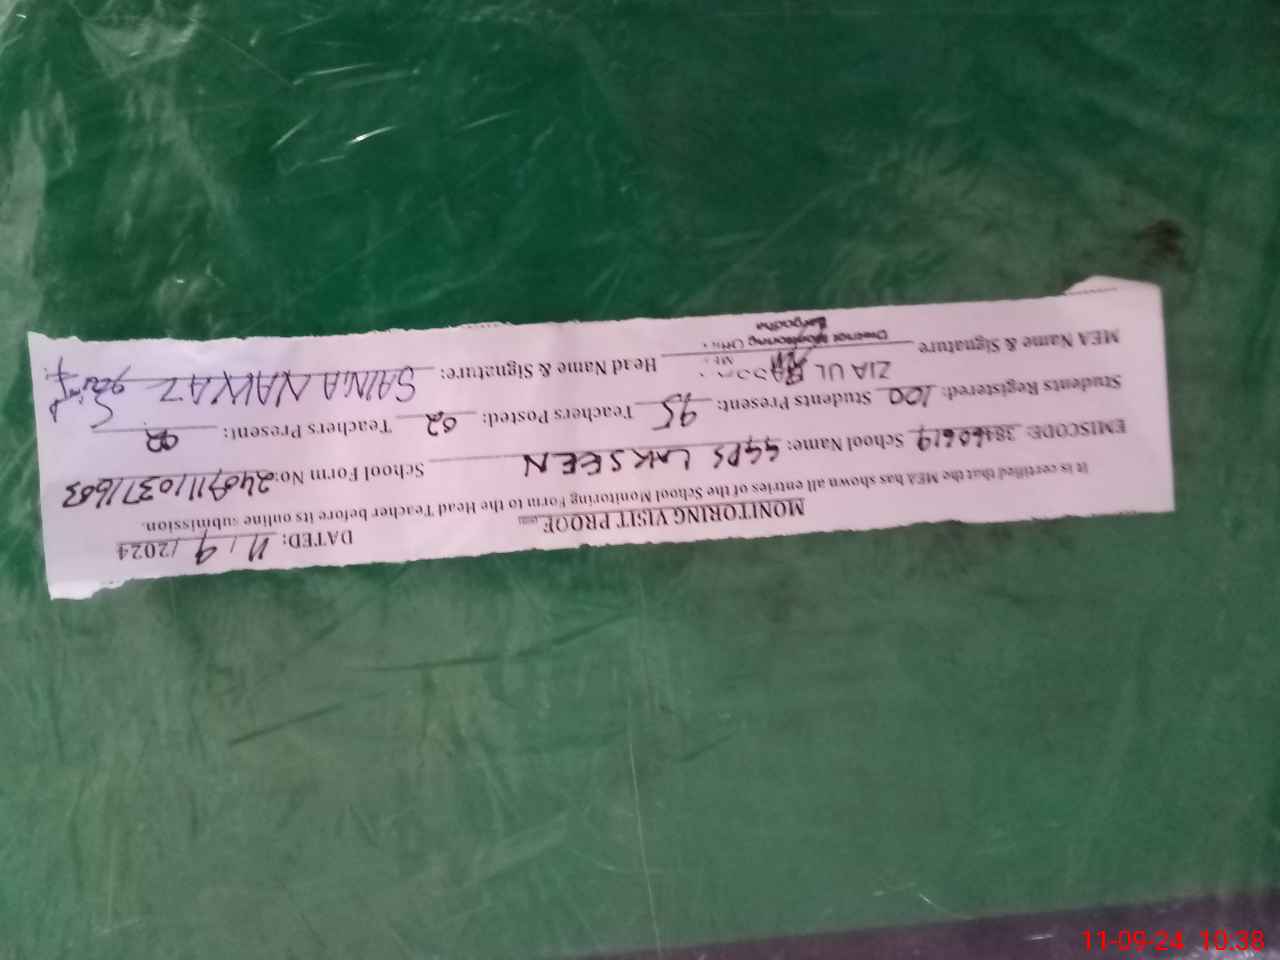 MONITORING VISIT PROOF
DATED: 11/9/2024
It is certified that the MEA has shown all entries of the School Monitoring Form to the Head Teacher before its online submission.
EMISCODE: 38460619 School Name: GGPS LAK SEEN School Form No: 
Students Registered: 100 Students Present: 95 Teachers Posted: 02 Teachers Present: 02
MEA Name & Signature ZIA UL Head Name & Signature: SAIMA NAWAZ
Monitoring
Sargodha
11-09-24 10:38